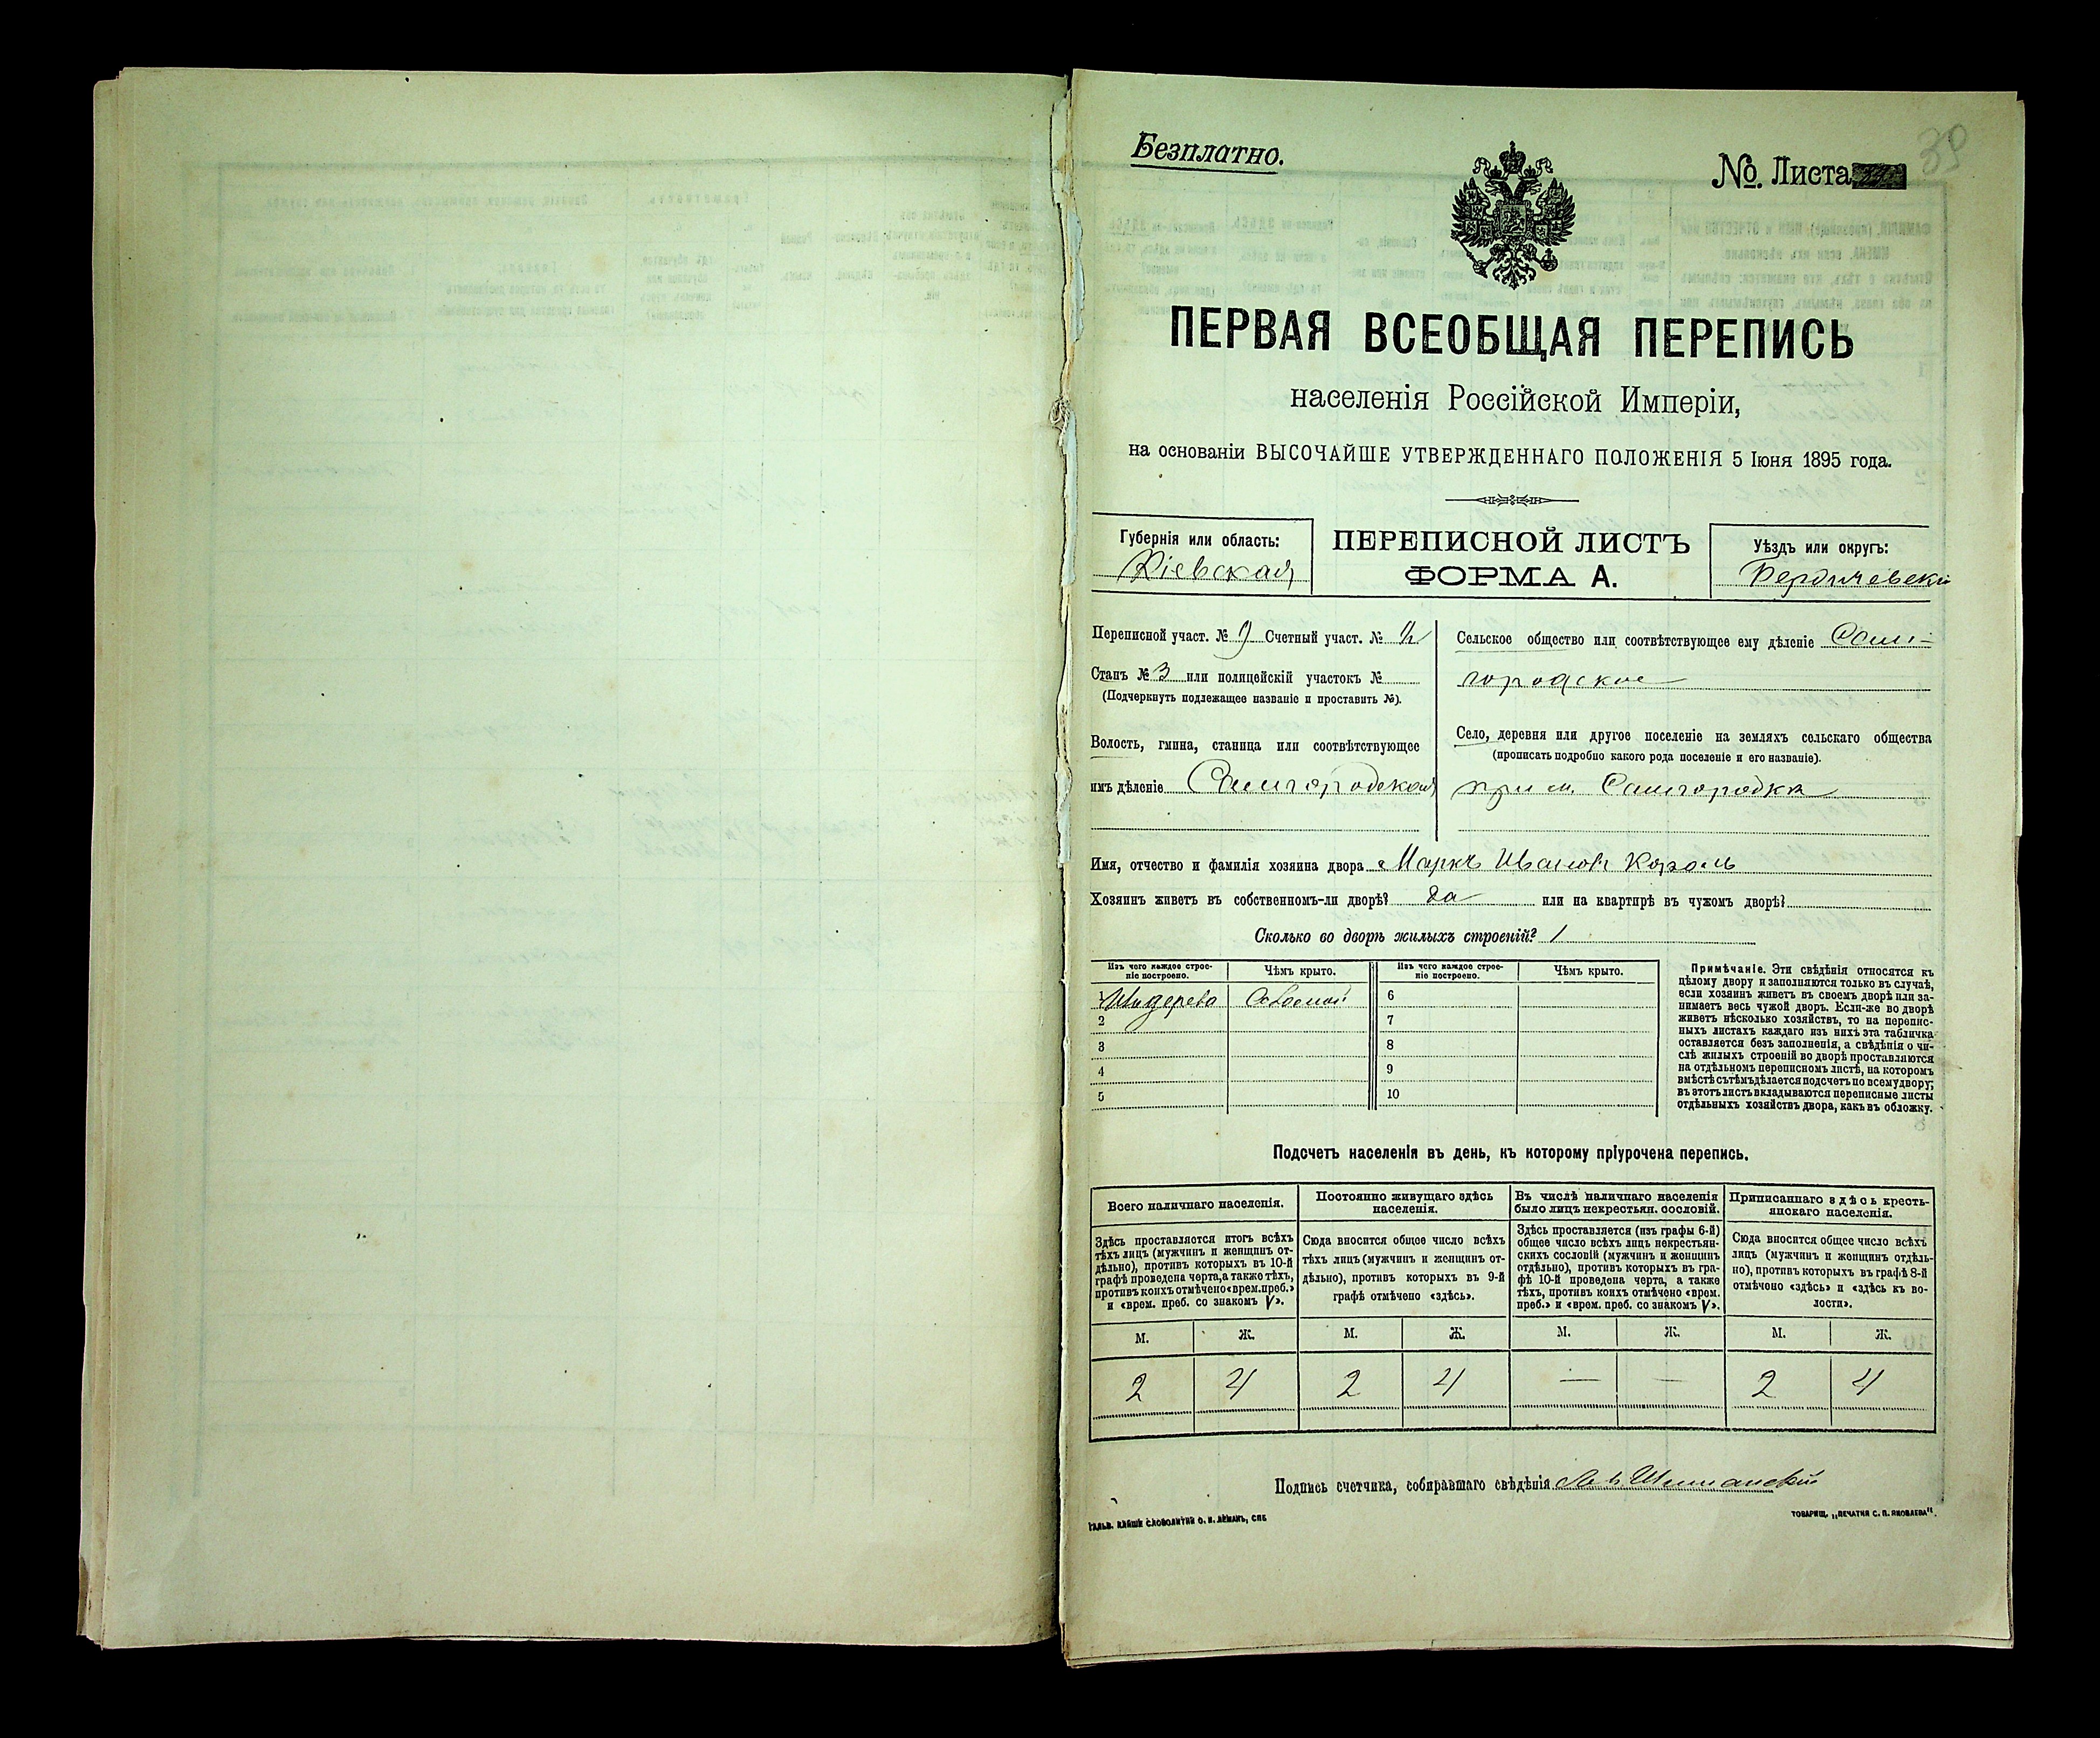 Безплатно.
39
№. Листа
ПЕРВАЯ ВСЕОБЩАЯ ПЕРЕПИСЬ
населенія Россійской Имперіи,
на основаніи ВЫСОЧАЙШЕ УТВЕРЖДЕННАГО ПОЛОЖЕНІЯ 5 Іюня 1895 года.
Губернія или область:
Кіевская
ПЕРЕПИСНОЙ ЛИСТЪ
ФОРМА А.
Уѣздъ или округъ:
Бердичевскі
Переписной участ. № 9 Счетный участ. №
Станъ № 3 или полицейскій участокъ №
(Подчеркнуть подлежащее названіе и проставить №).
Волость, гмина, станица или соотвѣтствующее
имъ дѣленіе Самгородская
Сельское общество или соотвѣтствующее ему дѣленіе Сам-
городское
Село, деревня или другое поселеніе на земляхъ сельскаго общества
(прописать подробно какого рода поселеніе и его названіе).
при м. Самгородкѣ
Имя, отчество и фамилія хозяина двора Маркъ Ивановъ Король
Хозяинъ живетъ въ собственномъ-ли дворѣ? да или на квартирѣ въ чужомъ дворѣ?
Сколько во дворѣ жилыхъ строеній? 1
Изъ чего каждое строе-
ніе построено.
Чѣмъ крыто.
Изъ чего каждое строе-
ніе построено.
Чѣмъ крыто.
1 Изъ дерева Соломой 6
2 7
3 8
4 9
5 10
Примѣчаніе. Эти свѣдѣнія относятся къ
цѣлому двору и заполняются только въ случаѣ,
если хозяинъ живетъ въ своемъ дворѣ или за-
нимаетъ весь чужой дворъ. Если-же во дворѣ
живетъ нѣсколько хозяйствъ, то на перепис-
ныхъ листахъ каждаго изъ нихъ эта табличка
оставляется безъ заполненія, а свѣдѣнія о чи-
слѣ жилыхъ строеній во дворѣ проставляются
на отдѣльномъ переписномъ листѣ, на которомъ
вмѣстѣ съ тѣмъ дѣлается подсчетъ по всему двору;
въ этотъ листъ вкладываются переписные листы
отдѣльныхъ хозяйствъ двора, какъ въ обложку.
Подсчетъ населенія въ день, къ которому пріурочена перепись.
Всего наличнаго населенія.
Постоянно живущаго здѣсь
населенія.
Въ числѣ наличнаго населенія
было лицъ некрестьян. сословій.
Приписаннаго здѣсь кресть-
янскаго населенія.
Здѣсь проставляется итогъ всѣхъ
тѣхъ лицъ (мужчинъ и женщинъ от-
дѣльно), противъ которыхъ въ 10-й
графѣ проведена черта, а также тѣхъ,
противъ коихъ отмѣчено «врем. преб.»
и «врем. преб. со знакомъ V».
Сюда вносится общее число всѣхъ
тѣхъ лицъ (мужчинъ и женщинъ от-
дѣльно), противъ которыхъ въ 9-й
графѣ отмѣчено «здѣсь».
Здѣсь проставляется (изъ графы 6-й)
общее число всѣхъ лицъ некрестьян-
скихъ сословій (мужчинъ и женщинъ
отдѣльно), противъ которыхъ въ гра-
фѣ 10-й проведена черта, а также
тѣхъ, противъ коихъ отмѣчено «врем.
преб.» и «врем. преб. со знакомъ V».
Сюда вносится общее число всѣхъ
лицъ (мужчинъ и женщинъ отдѣль-
но), противъ которыхъ въ графѣ 8-й
отмѣчено «здѣсь» и «здѣсь къ во-
лости».
М. Ж. М. Ж. М. Ж. М. Ж.
2 4 2 4 — — 2 4
Подпись счетчика, собиравшаго свѣдѣнія
ТОВАРИЩ. „ПЕЧАТНЯ С. П. ЯКОВЛЕВА“.